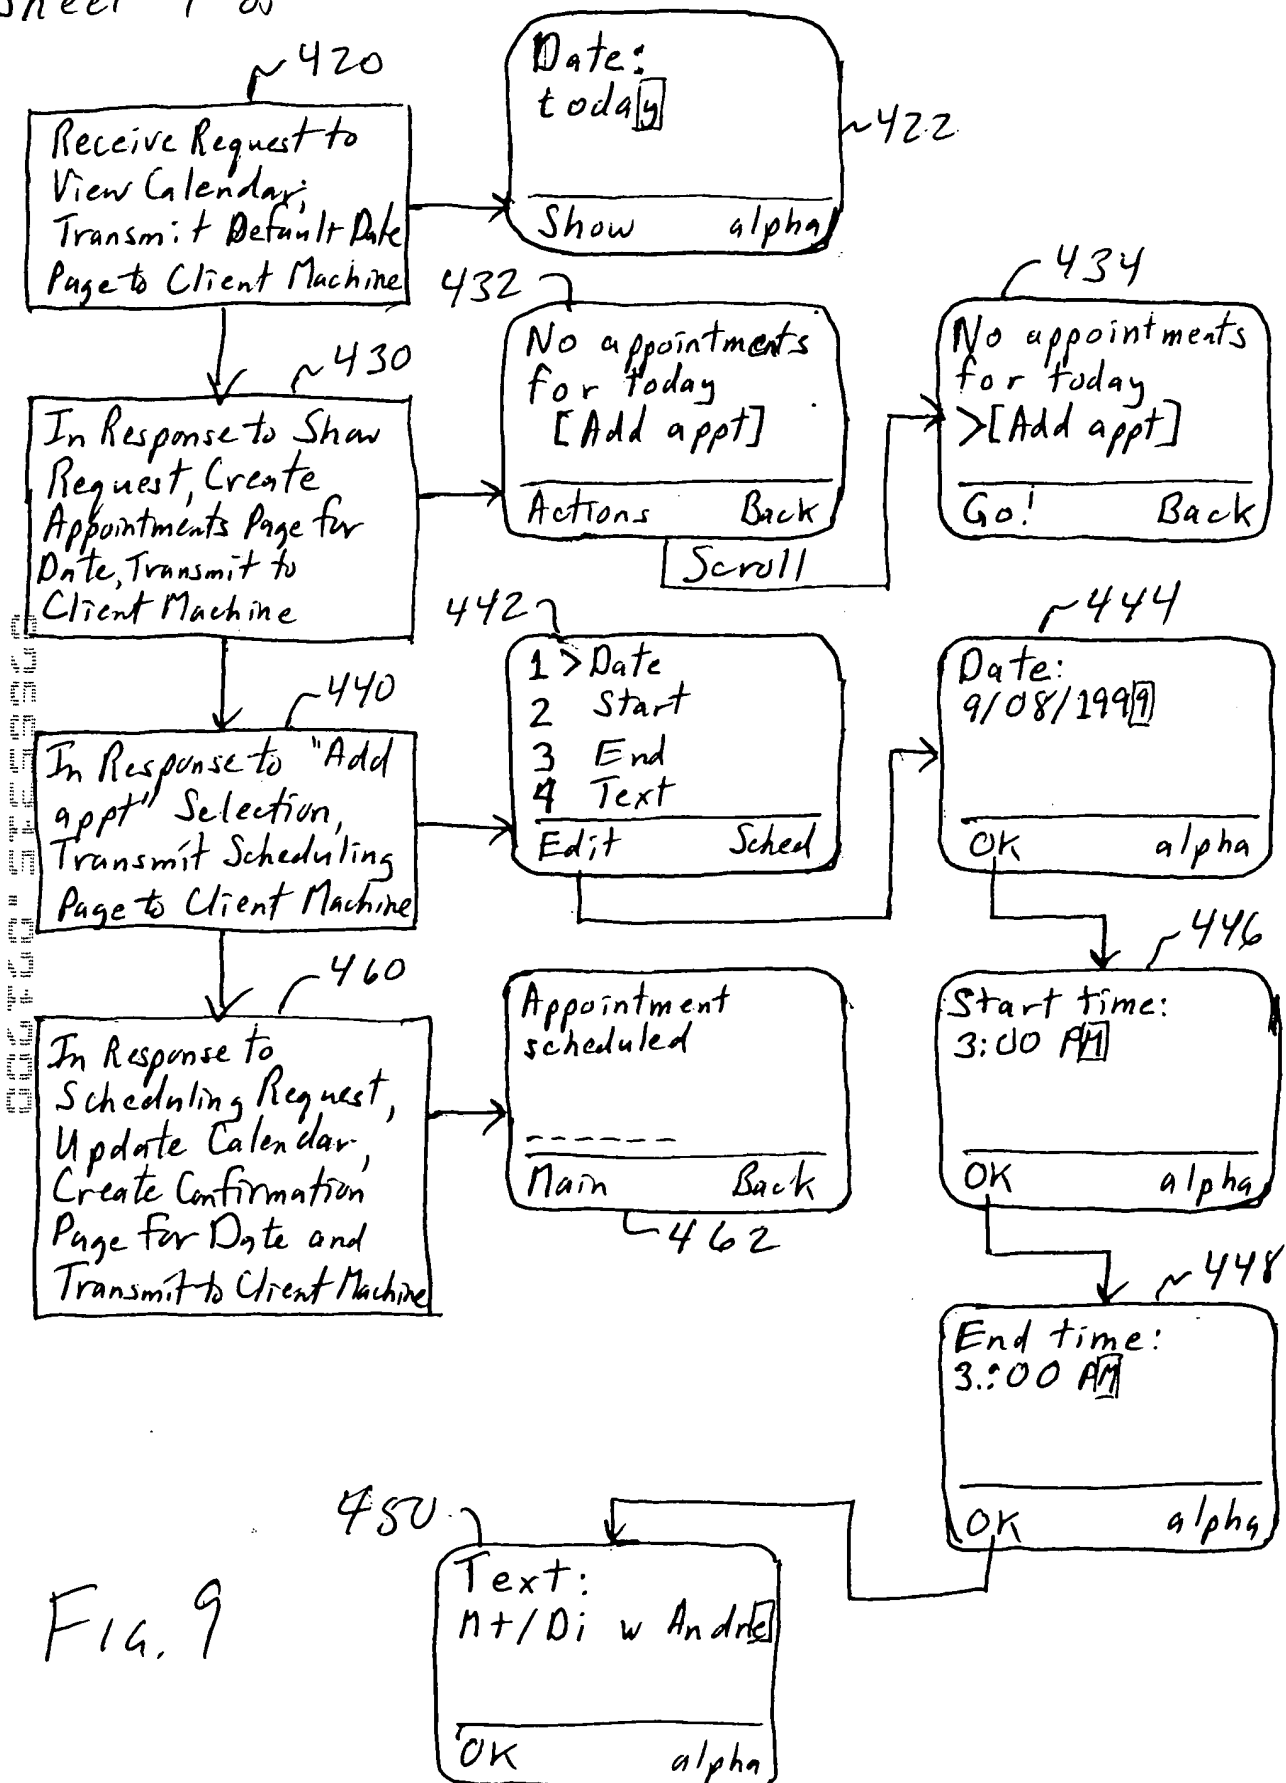 420
Receive Request to
View Calendar;
Transmit Default Date
Page to Client Machine
Date:
today
Show alpha
422
430
In Response to Show
Request, Create
Appointments Page for
Date, Transmit to
Client Machine
432
No appointments
for today
[Add appt]
Actions Back
Scroll
434
No appointments
for today
>[Add appt]
Go! Back
440
In Response to "Add
appt" Selection,
Transmit Scheduling
Page to Client Machine
442
1 > Date
2 Start
3 End
4 Text
Edit Sched
444
Date:
9/08/1999
OK alpha
446
Start time:
3:00 PM
OK alpha
460
In Response to
Scheduling Request,
Update Calendar,
Create Confirmation
Page for Date and
Transmit to Client Machine
Appointment
scheduled
------
Main Back
462
448
End time:
3:00 AM
OK alpha
450
Text:
Mt/Di w Andre
OK alpha
FIG. 9